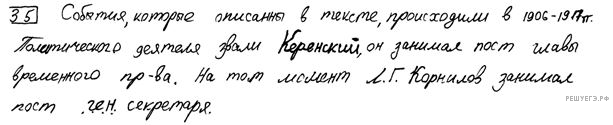 35 События, которые описанны в тексте, происходили в 1906-1917гг.
Политического деятеля звали Керенский, он занимал пост главы
временного пр-ва. На тот момент Л.Г. Корнилов занимал
пост ген. секретаря.
РЕШУЕГЭ.РФ